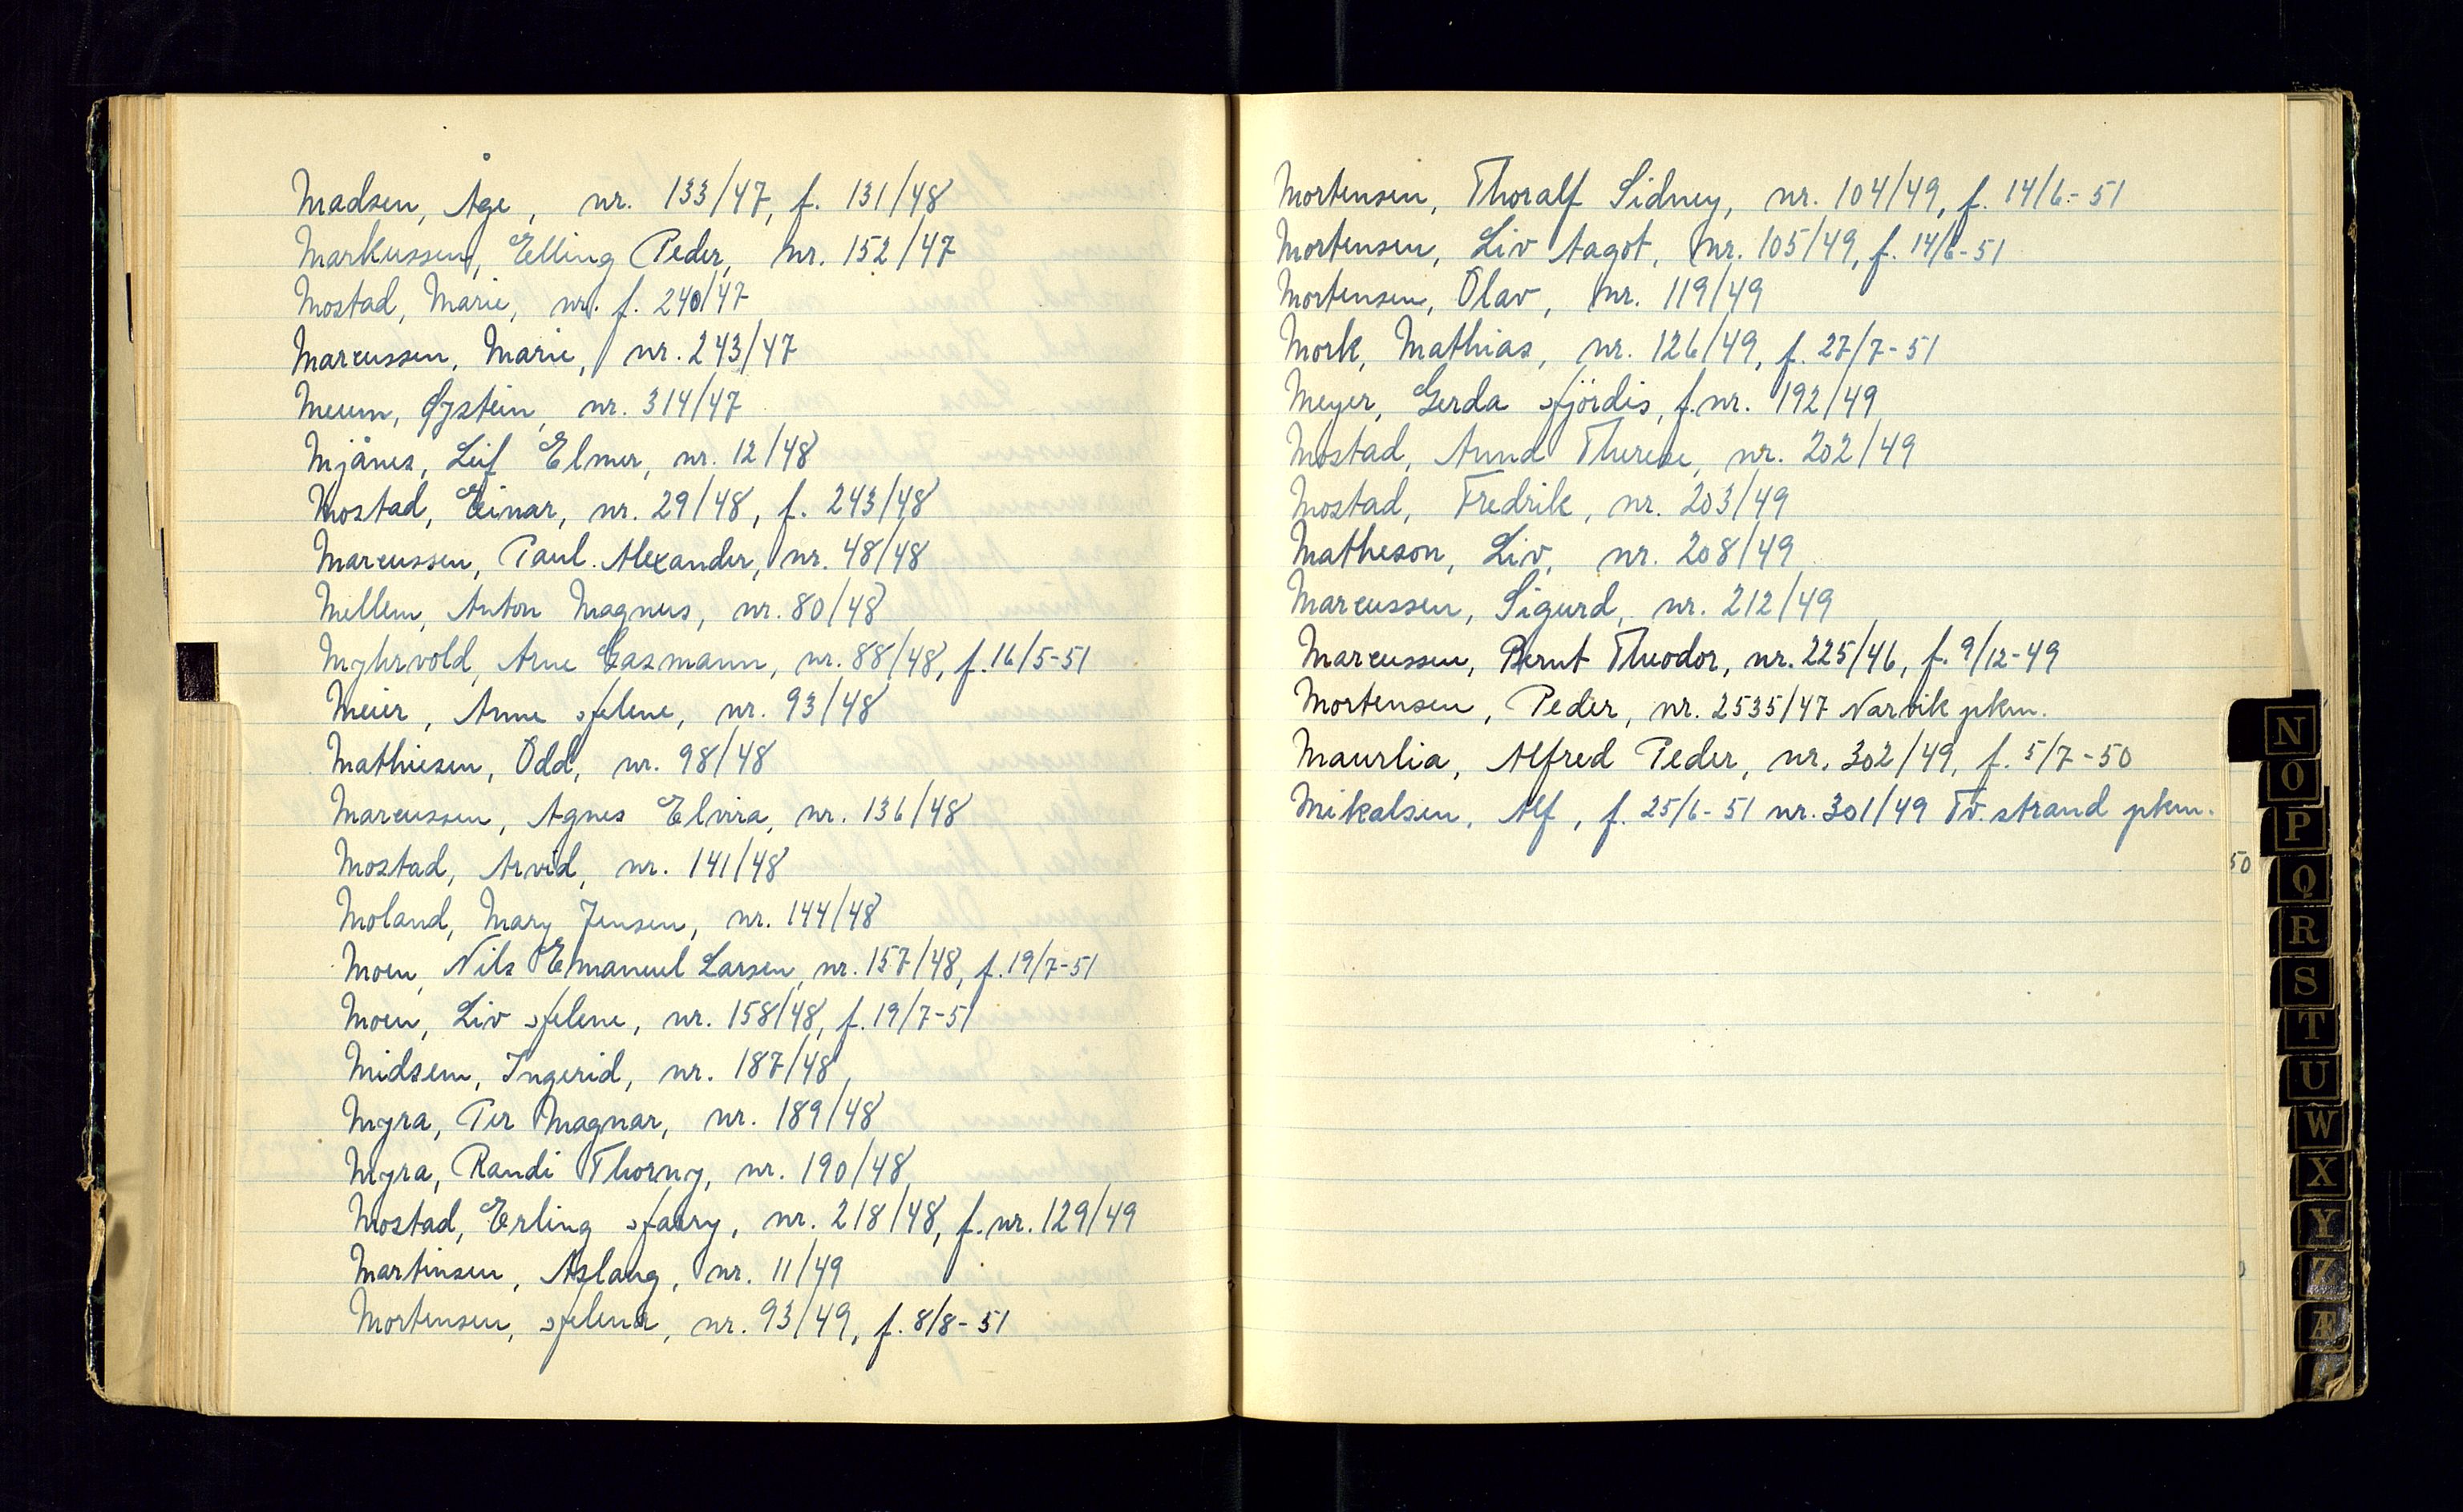 Madsen, Åge, nr. 133/47, f. 131/48
Markussen, Elling Peder, nr. 152/47
Mostad, Marie, nr. f. 240/47
Marcussen, Marie, nr. 243/47
Meum, Øystein, nr. 314/47
Mjånes, Leif Elmer, nr. 12/48
Mostad, Einar, nr. 29/48, f. 243/48
Marcussen, Paul Alexander, nr. 48/48
Mellem, Anton Magnus, nr. 80/48
Myhrvold, Arne Gasmann, nr. 88/48, f. 16/5-51
Meier, Anne Helene, nr. 93/48
Mathiesen, Odd, nr. 98/48
Marcussen, Agnes Elvira, nr. 136/48
Mostad, Arvid, nr. 141/48
Moland, Mary Jensen, nr. 144/48
Moen, Nils Emanuel Larsen, nr. 157/48, f. 19/7-51
Moen, Liv Helene, nr. 158/48, f. 19/7-51
Midsem, Ingerid, nr. 187/48,
Myra, Per Magnar, nr. 189/48
Myra, Randi Thorny, nr. 190/48
Mostad, Erling Harry, nr. 218/48, f. nr. 129/49
Martinsen, Aslaug, nr. 11/49
Mortensen, Helena, nr. 93/49, f. 8/8-51
Mortensen, Thoralf Sidney, nr. 104/49, f. 14/6-51
Mortensen, Liv Aagot, nr. 105/49, f. 14/6-51
Mortensen, Olav, nr. 119/49
Mork, Mathias, nr. 126/49, f. 27/7-51
Meyer, Gerda Hjördis, f. nr. 192/49
Mostad, Anna Therese, nr. 202/49
Mostad, Fredrik, nr. 203/49
Matheson, Liv, nr. 208/49
Marcussen, Sigurd, nr. 212/49
Marcussen, Bernt Theodor, nr. 225/46, f. 9/12-49
Mortensen, Peder, nr. 2535/47 Narvik pkm.
Maurlia, Alfred Peder, nr. 302/49, f. 5/7-50
Mikalsen, Alf, f. 25/6-51 nr. 301/49 Tv.strand pkm.
50
N
O
P
Q
R
S
T
U
W
X
Y
Z
Æ